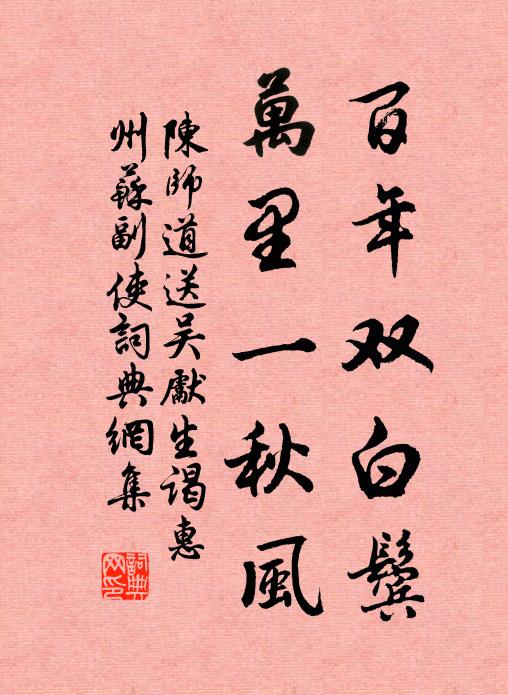 百年双白鬓
萬里一秋風
陳師道送吴獻生謁惠
州蘇副使詞典網集
詞典
网印